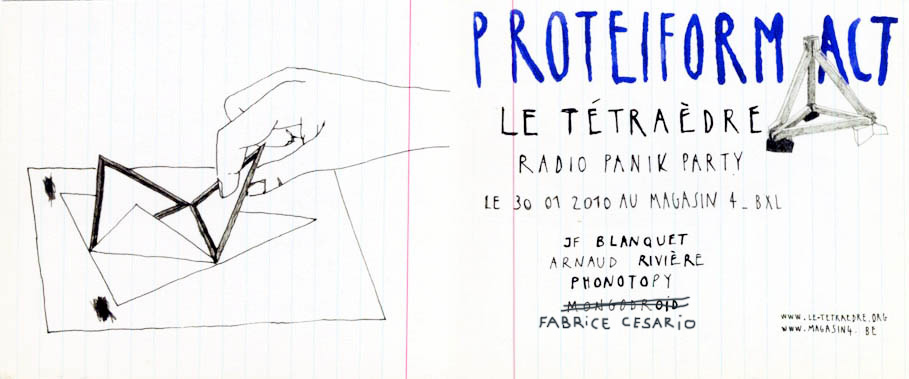 PROTEIFORM ACT
LE TÉTRAÈDRE
RADIO PANIK PARTY
LE 30 01 2010 AU MAGASIN 4_ BXL
JF BLANQUET
ARNAUD RIVIÈRE
PHONOTOPY
MONGODROID
FABRICE CESARIO
WWW.LE-TETRAEDRE.ORG
WWW.MAGASIN4.BE